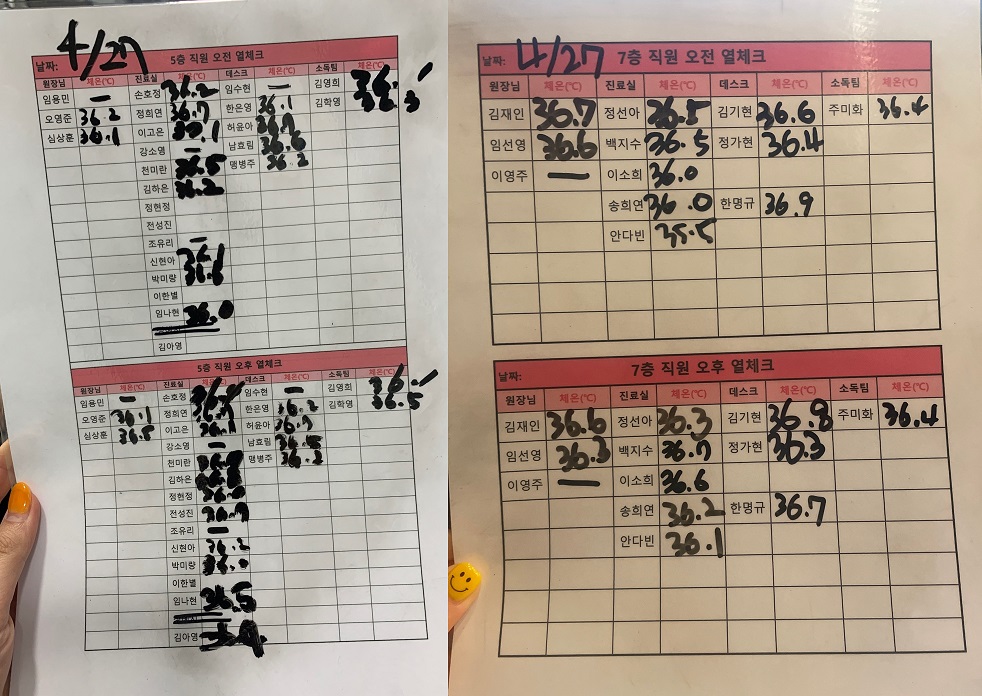 4/27
5층 직원 오전 열체크
날짜:
원장님 체온(℃) 진료실 체온(℃) 데스크 체온(℃) 소독팀 체온(℃)
임용민 — 손호정 36.2 임수현 — 김영희
오영준 36.2 정희연 36.7 한은영 36.1 김학영
심상훈 36.1 이고은 허윤아
강소영 — 남효림 36.6
천미란 36.5 맹병주 36.2
김하은 36.2
정현정
전성진
조유리 —
신현아
박미랑 36.6
이한별
임나현 36.0
김아영
5층 직원 오후 열체크
날짜:
원장님 체온(℃) 진료실 체온(℃) 데스크 체온(℃) 소독팀 체온(℃)
임용민 — 손호정 임수현 — 김영희
오영준 36.1 정희연 한은영 36.2 김학영 36.5
심상훈 36.5 이고은 허윤아 36.7
강소영 — 남효림
천미란 맹병주 36.2
김하은
정현정
전성진 36.7
조유리 —
신현아 36.2
박미랑
이한별
임나현 36.5
김아영
4/27
7층 직원 오전 열체크
날짜:
원장님 체온(℃) 진료실 체온(℃) 데스크 체온(℃) 소독팀 체온(℃)
김재인 36.7 정선아 36.5 김기현 36.6 주미화 36.4
임선영 36.6 백지수 36.5 정가현 36.4
이영주 — 이소희 36.0
송희연 36.0 한명규 36.9
안다빈 35.5
7층 직원 오후 열체크
날짜:
원장님 체온(℃) 진료실 체온(℃) 데스크 체온(℃) 소독팀 체온(℃)
김재인 36.6 정선아 36.3 김기현 36.8 주미화 36.4
임선영 36.3 백지수 36.7 정가현 36.3
이영주 — 이소희 36.6
송희연 36.2 한명규 36.7
안다빈 36.1